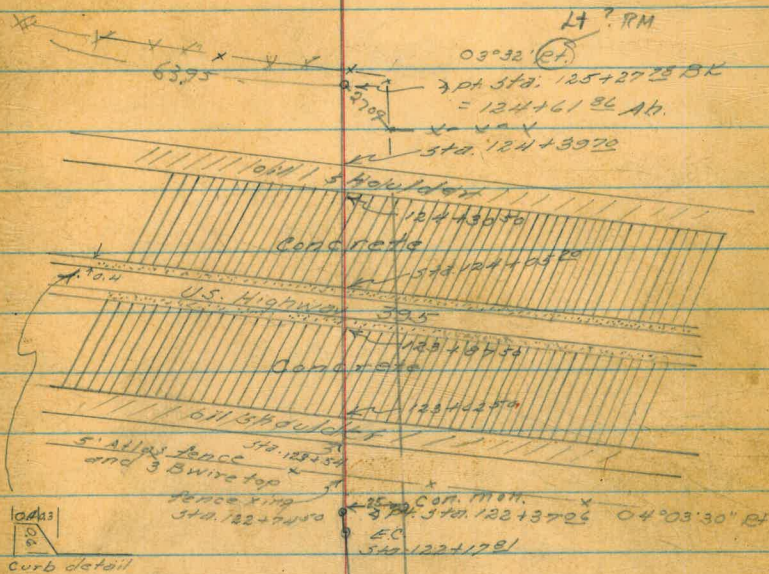 Lt ? RM
03°32' Rt.
63.95
pt. sta. 125+27.78 BK
= 124+61.86 Ah.
27.09
Sta. 124+39.70
oil shoulder
124+30.50
Concrete
Sta. 124+05.20
0.4
U.S. Highway 395
123+87.50
Concrete
123+62.50
oil shoulder
Sta. 123+54
5' Atlas fence
and 3 B wire top
fence xing
Sta. 122+74.50
Con. mon.
pt. Sta. 122+37.06 04°03'30" Rt
EC
Sta. 122+17.81
Curb detail